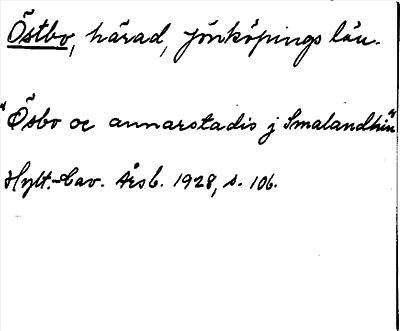 Östbo, härad, Jönköpings län.
"Ösbo oc annarstadis j Smalandhin"
Hylt.-Cav. Årsb. 1928, s. 106.